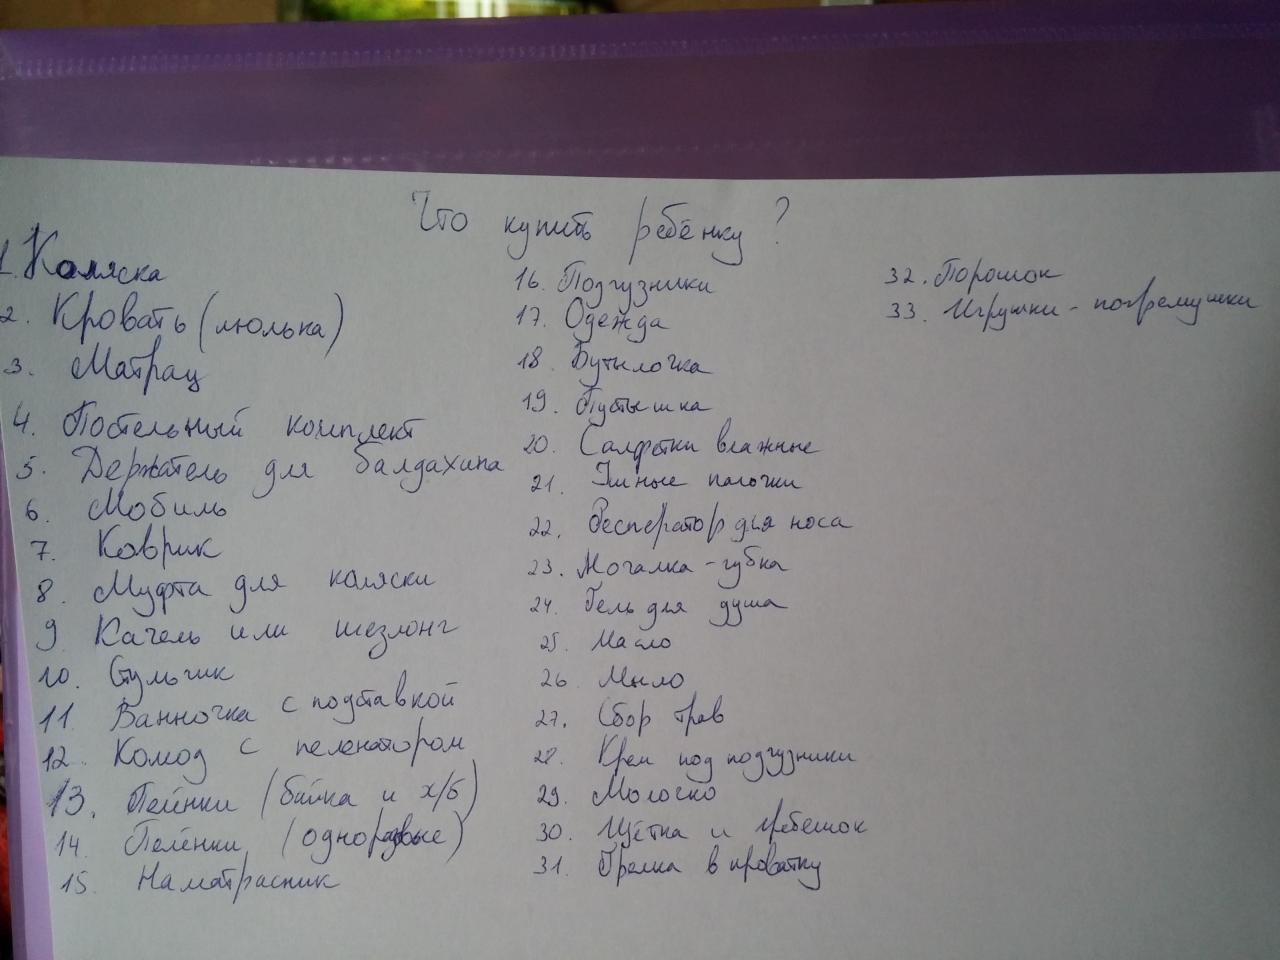 Что купить ребёнку?
1. Коляска
2. Кровать (люлька)
3. Матрац
4. Постельный комплект
5. Держатель для балдахина
6. Мобиль
7. Коврик
8. Муфта для коляски
9 Качель или шезлонг
10. Стульчик
11. Ванночка с подставкой
12. Комод с пеленатором
13. Пелёнки (байка и х/б)
14. Пелёнки (одноразовые)
15. Наматрасник
16. Подгузники
17. Одежда
18. Бутылочка
19. Пустышка
20. Салфетки влажные
21. Ушные палочки
22. Респератор для носа
23. Мочалка-губка
24. Гель для душа
25. Масло
26. Мыло
27. Сбор трав
28. Крем под подгузники
29. Молочко
30. Щётка и гребешок
31. Грелка в кроватку
32. Порошок
33. Игрушки-погремушки